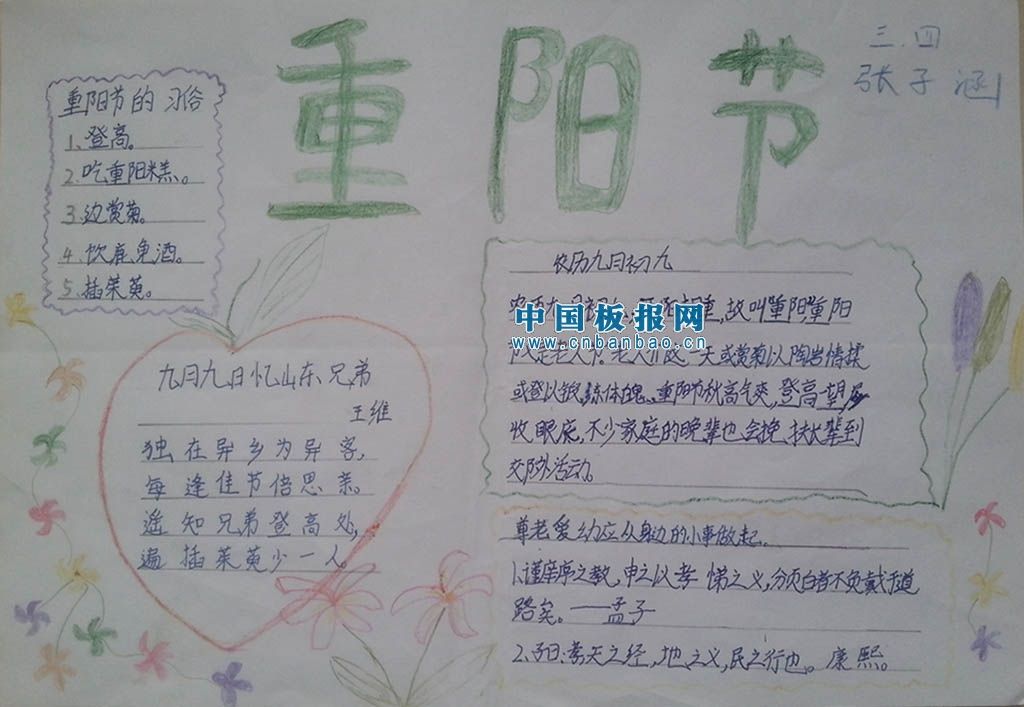 重阳节
三.四
张子涵
重阳节的习俗
1.登高。
2.吃重阳糕。
3.边赏菊。
4.饮
酒。
5.插茱萸。
九月九日忆山东兄弟
王维
独在异乡为异客,
每逢佳节倍思亲。
遥知兄弟登高处,
遍插茱萸少一人。
农历九月初九
农历九月初九,
重,故叫"重阳",重阳
一天或赏菊以陶
情操
或登
以锻练体魄。重阳节秋高气爽,登高望
收眼底,不少家庭的晚辈也会挽扶长辈到
交阝外活动。
中国板报网
www.cnbanbao.cn
尊老爱幼应从身边的小事做起.
1.谨庠序之教,申之以孝悌之义,
白者不负戴于道
路矣。——孟子
2.子曰:孝天之经,地之义,民之行也。康熙。